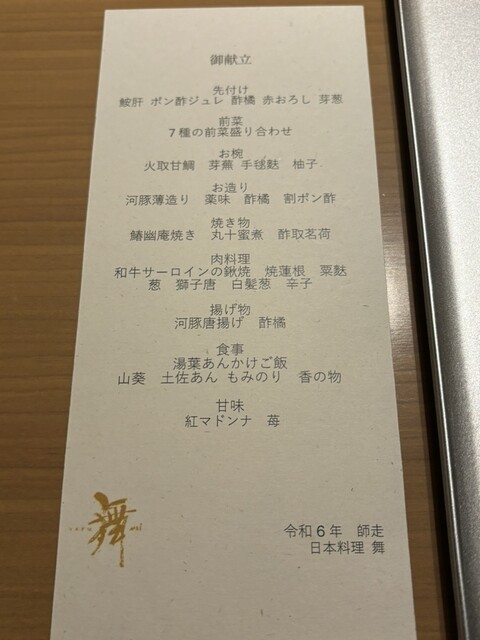 御献立
先付け
鮟肝 ポン酢ジュレ 酢橘 赤おろし 芽葱
前菜
７種の前菜盛り合わせ
お椀
火取甘鯛 芽蕪 手毬麩 柚子
お造り
河豚薄造り 薬味 酢橘 割ポン酢
焼き物
鰆幽庵焼き 丸十蜜煮 酢取茗荷
肉料理
和牛サーロインの鍬焼 焼蓮根 粟麩
葱 獅子唐 白髪葱 辛子
揚げ物
河豚唐揚げ 酢橘
食事
湯葉あんかけご飯
山葵 土佐あん もみのり 香の物
甘味
紅マドンナ 苺
舞
令和６年 師走
日本料理 舞